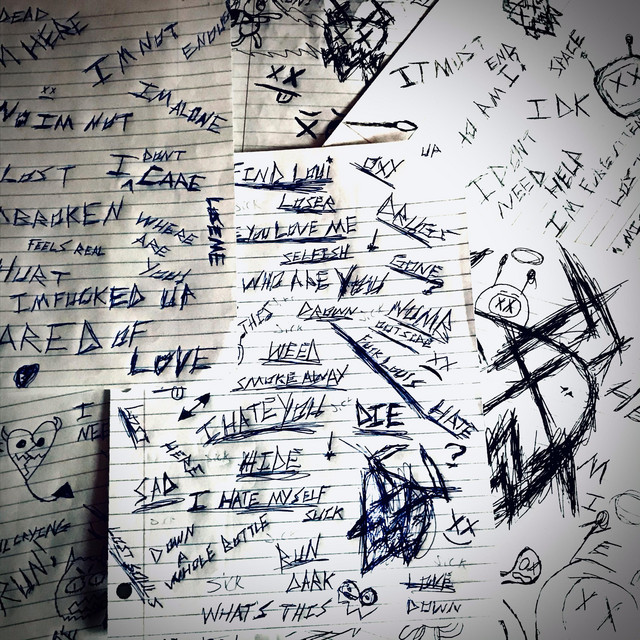 DEAD
A HERE
I'M NOT
ENOUGH
I'M ALONE
NO IM NOT
LOST
I DONT CARE
BROKEN
WHERE ARE YOU
FEELS REAL
HURT
IM FUCKED UP
ARED OF
LOVE
IT MUST END
SPACE
TO AM I
IDK
UP
I DON'T NEED HELP
FIND LOUI
OXX
LOSER
DRUGS
YOU LOVE ME
SELFISH
GONE
WHO ARE YOU
?
THIS
CROWN
NUMB
OUTSIDE
SICK
WEED
SMOKE AWAY
XX
HATE
I HATE YOU
SICK
DIE
HIDE
?
SAD
I HATE MYSELF
SUCK
DOWN A WHOLE BOTTLE
RUN
SICK
DARK
LOVE
WHAT'S THIS
DOWN
I NEE
CRYING
RUN